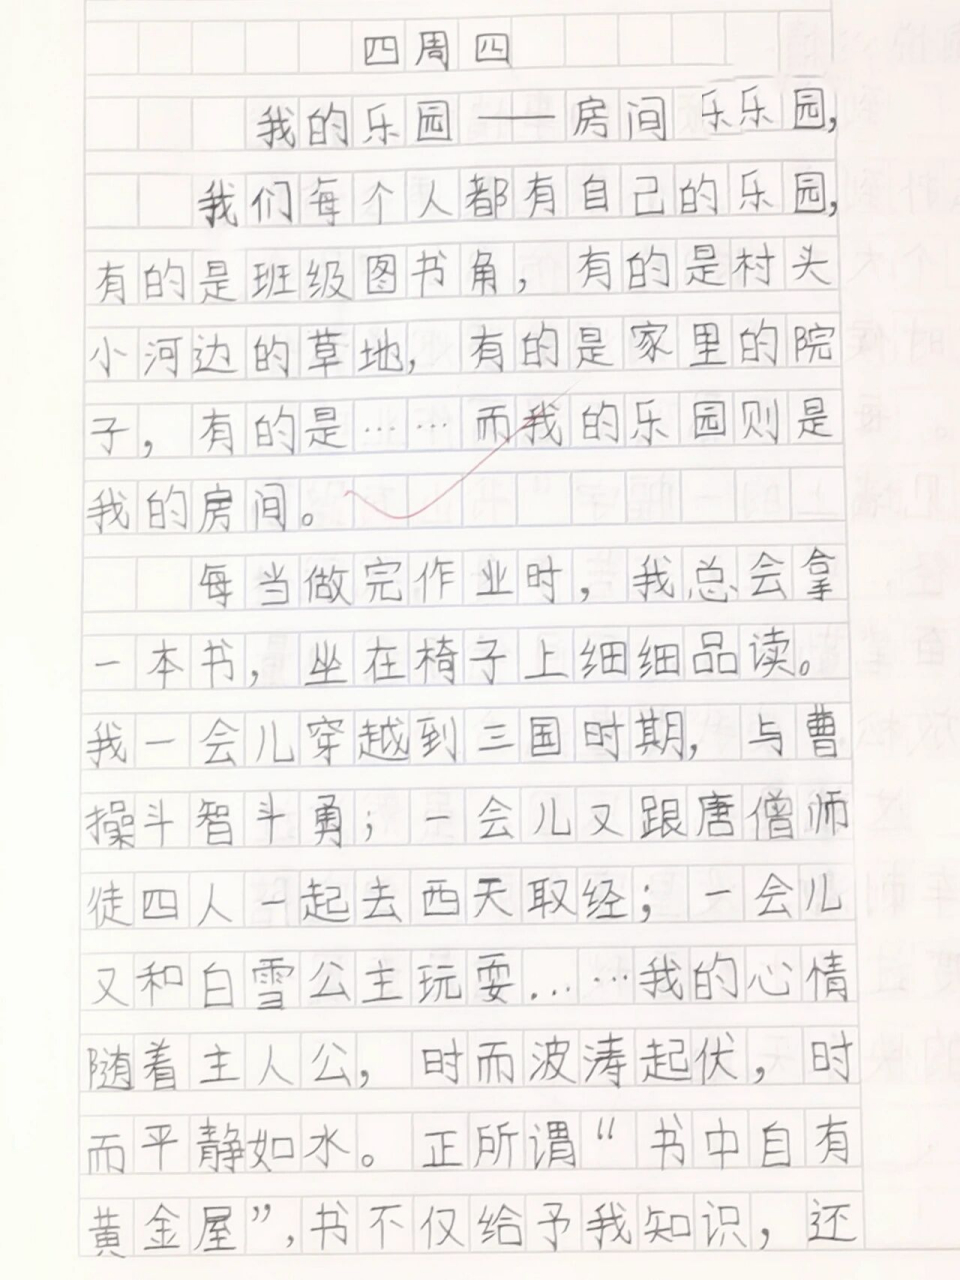 四周四
我的乐园——房间乐乐园,
我们每个人都有自己的乐园,
有的是班级图书角，有的是村头
小河边的草地，有的是家里的院
子，有的是……而我的乐园则是
我的房间。
每当做完作业时，我总会拿
一本书，坐在椅子上细细品读。
我一会儿穿越到三国时期，与曹
操斗智斗勇；一会儿又跟唐僧师
徒四人一起去西天取经；一会儿
又和白雪公主玩耍……我的心情
随着主人公，时而波涛起伏，时
而平静如水。正所谓“书中自有
黄金屋”,书不仅给予我知识，还